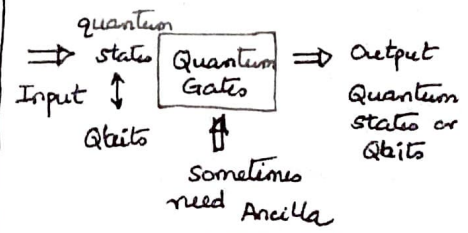 quantum
states
Input
Qbits
Quantum
Gates
Output
Quantum
states or
Qbits
Sometimes
need Ancilla